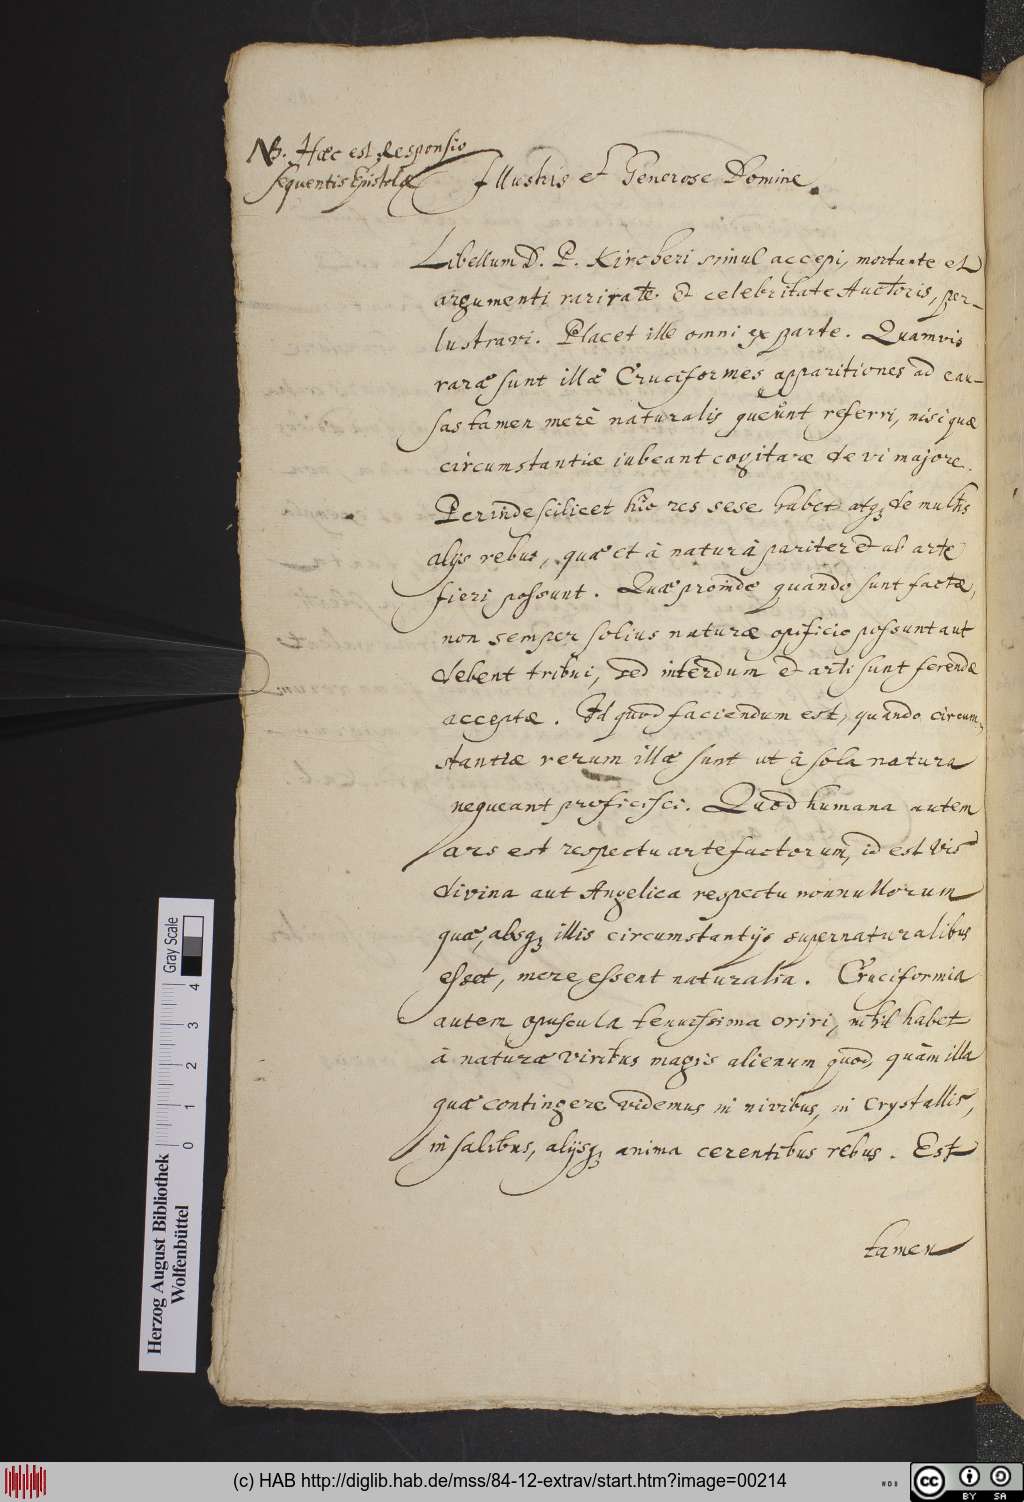 NB. Hæc est Responsio
sequentis Epistolæ
Illustris et Generose Domine.
Libellum D. P. Kircheri simul accepi, et
argumenti raritate et celebritate Auctoris, per-
lustravi. Placet ille omni ex parte. Quamvis
raræ sunt illæ Cruciformes apparitiones ad cau-
sas tamen merè naturalis queunt referri, nisi quæ
circumstantiæ iubeant cogitare de vi majore.
Perinde scilicet hîc res sese habet atq; de multis
alijs rebus, quæ et à naturâ pariter et ab arte
fieri possunt. Quæ proinde quando sunt factæ,
non semper solius naturæ opificio possunt aut
debent tribui, sed interdum et arti sunt ferendæ
acceptæ. Id quod faciendum est, quando circum-
stantiæ rerum illæ sunt ut à sola natura
nequeant proficisci. Quod humana autem
ars est respectu artefactorum, id est vis
divina aut Angelica respectu nonnullorum
quæ, absq; illis circumstantijs supernaturalibus
esset, mere essent naturalia. Cruciformia
autem opuscula tenuissima oriri, nihil habet
à naturæ viribus magis alienum quod, quàm illa
quæ contingere videmus in nivibus, in Crystallis,
in salibus, alijsq; anima cerentibus rebus. Est
tamen
Herzog August Bibliothek
Wolfenbüttel
0 1 2 3 4
Gray Scale
(c) HAB http://diglib.hab.de/mss/84-12-extrav/start.htm?image=00214
cc BY SA